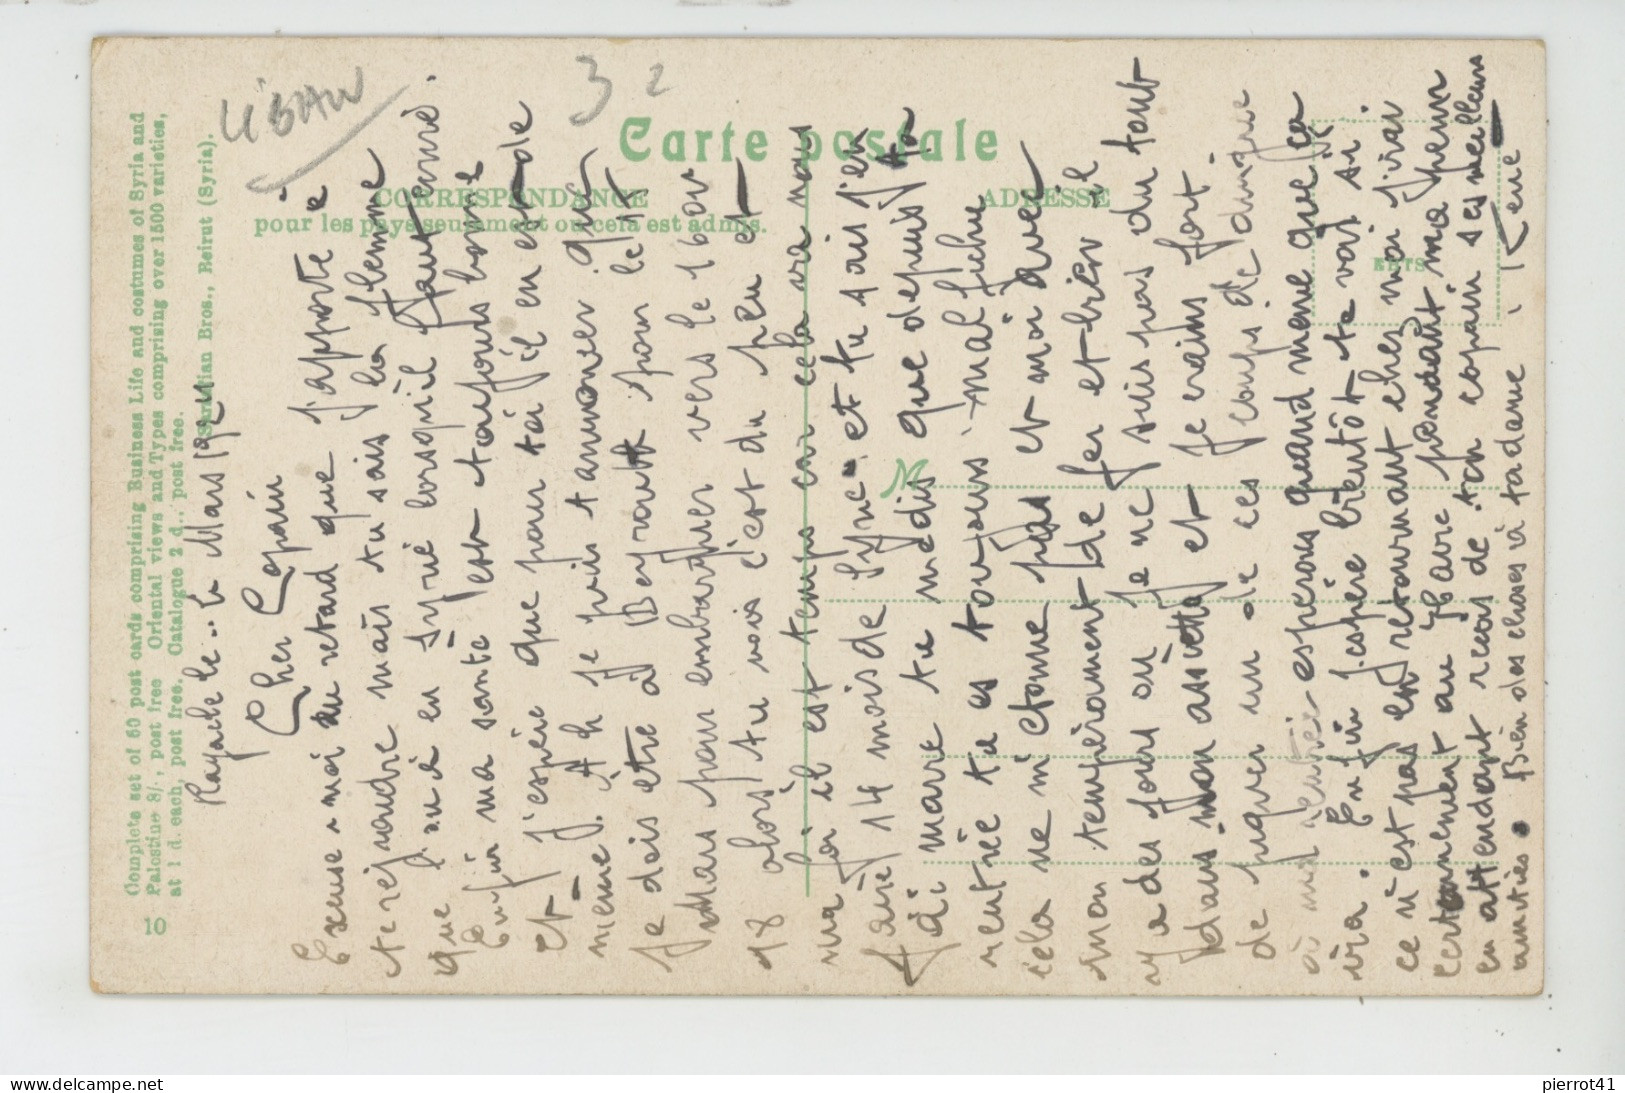 LIBAN
3 2
Carte postale
CORRESPONDANCE
pour les pays seulement ou cela est admis.
ADRESSE
M
Complete set of 60 post cards comprising Business Life and costumes of Syria and
Palestine 8/-, post free Oriental views and Types comprising over 1500 varieties,
at 1 d. each, post free. Catalogue 2 d., post free.
Sarrafian Bros., Beirut (Syria).
10
Rayack le .. le Mars 192
Cher Copain
Excuse moi du retard que j'apporte à
te repondre mais tu sais la flemme
que l'on à en Syrie lorsqu'il faut ecrire.
Enfin ma santé est toujours bonne
et j'espère que pour toi il en est de
meme. Ah je puis t'annoncer que
Je dois être à Beyrouth pour le 15
Mars pour embarquer vers le 16 ou
18 alors tu vois c'est du peu et
ma foi il est temps car cela va nous
faire 14 mois de Syrie et tu sais j'en
ai marre tu me dis que depuis ta
rentrée tu es toujours mal fichu
cela ne m'etonne pas et moi avec
mon temperament de fer et bien il
y a des jours ou je ne suis pas du tout
dans mon assiette et je crains fort
de piquer un de ces coups de dingue
à ma rentrée esperons quand meme que ça
ira. Enfin j'espère bientôt te voir si
ce n'est pas en retournant chez moi j'irai
certainement au Havre pendant ma perm
en attendant recois de ton copain ses meilleurs
amitiés. Bien des choses à ta dame. René
pierrot41